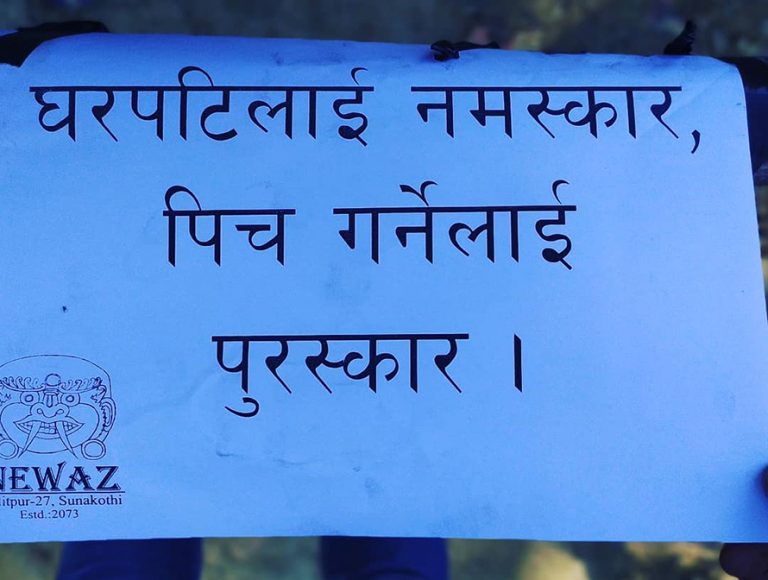 घरपटिलाई नमस्कार,
पिच गर्नेलाई
पुरस्कार ।
NEWAZ
litpur-27, Sunakothi
Estd.:2073